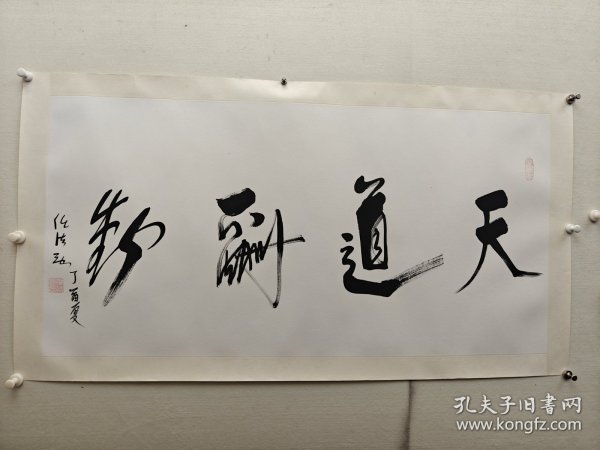 天道酬勤
任法融
丁酉夏
孔夫子旧书网
www.kongfz.com